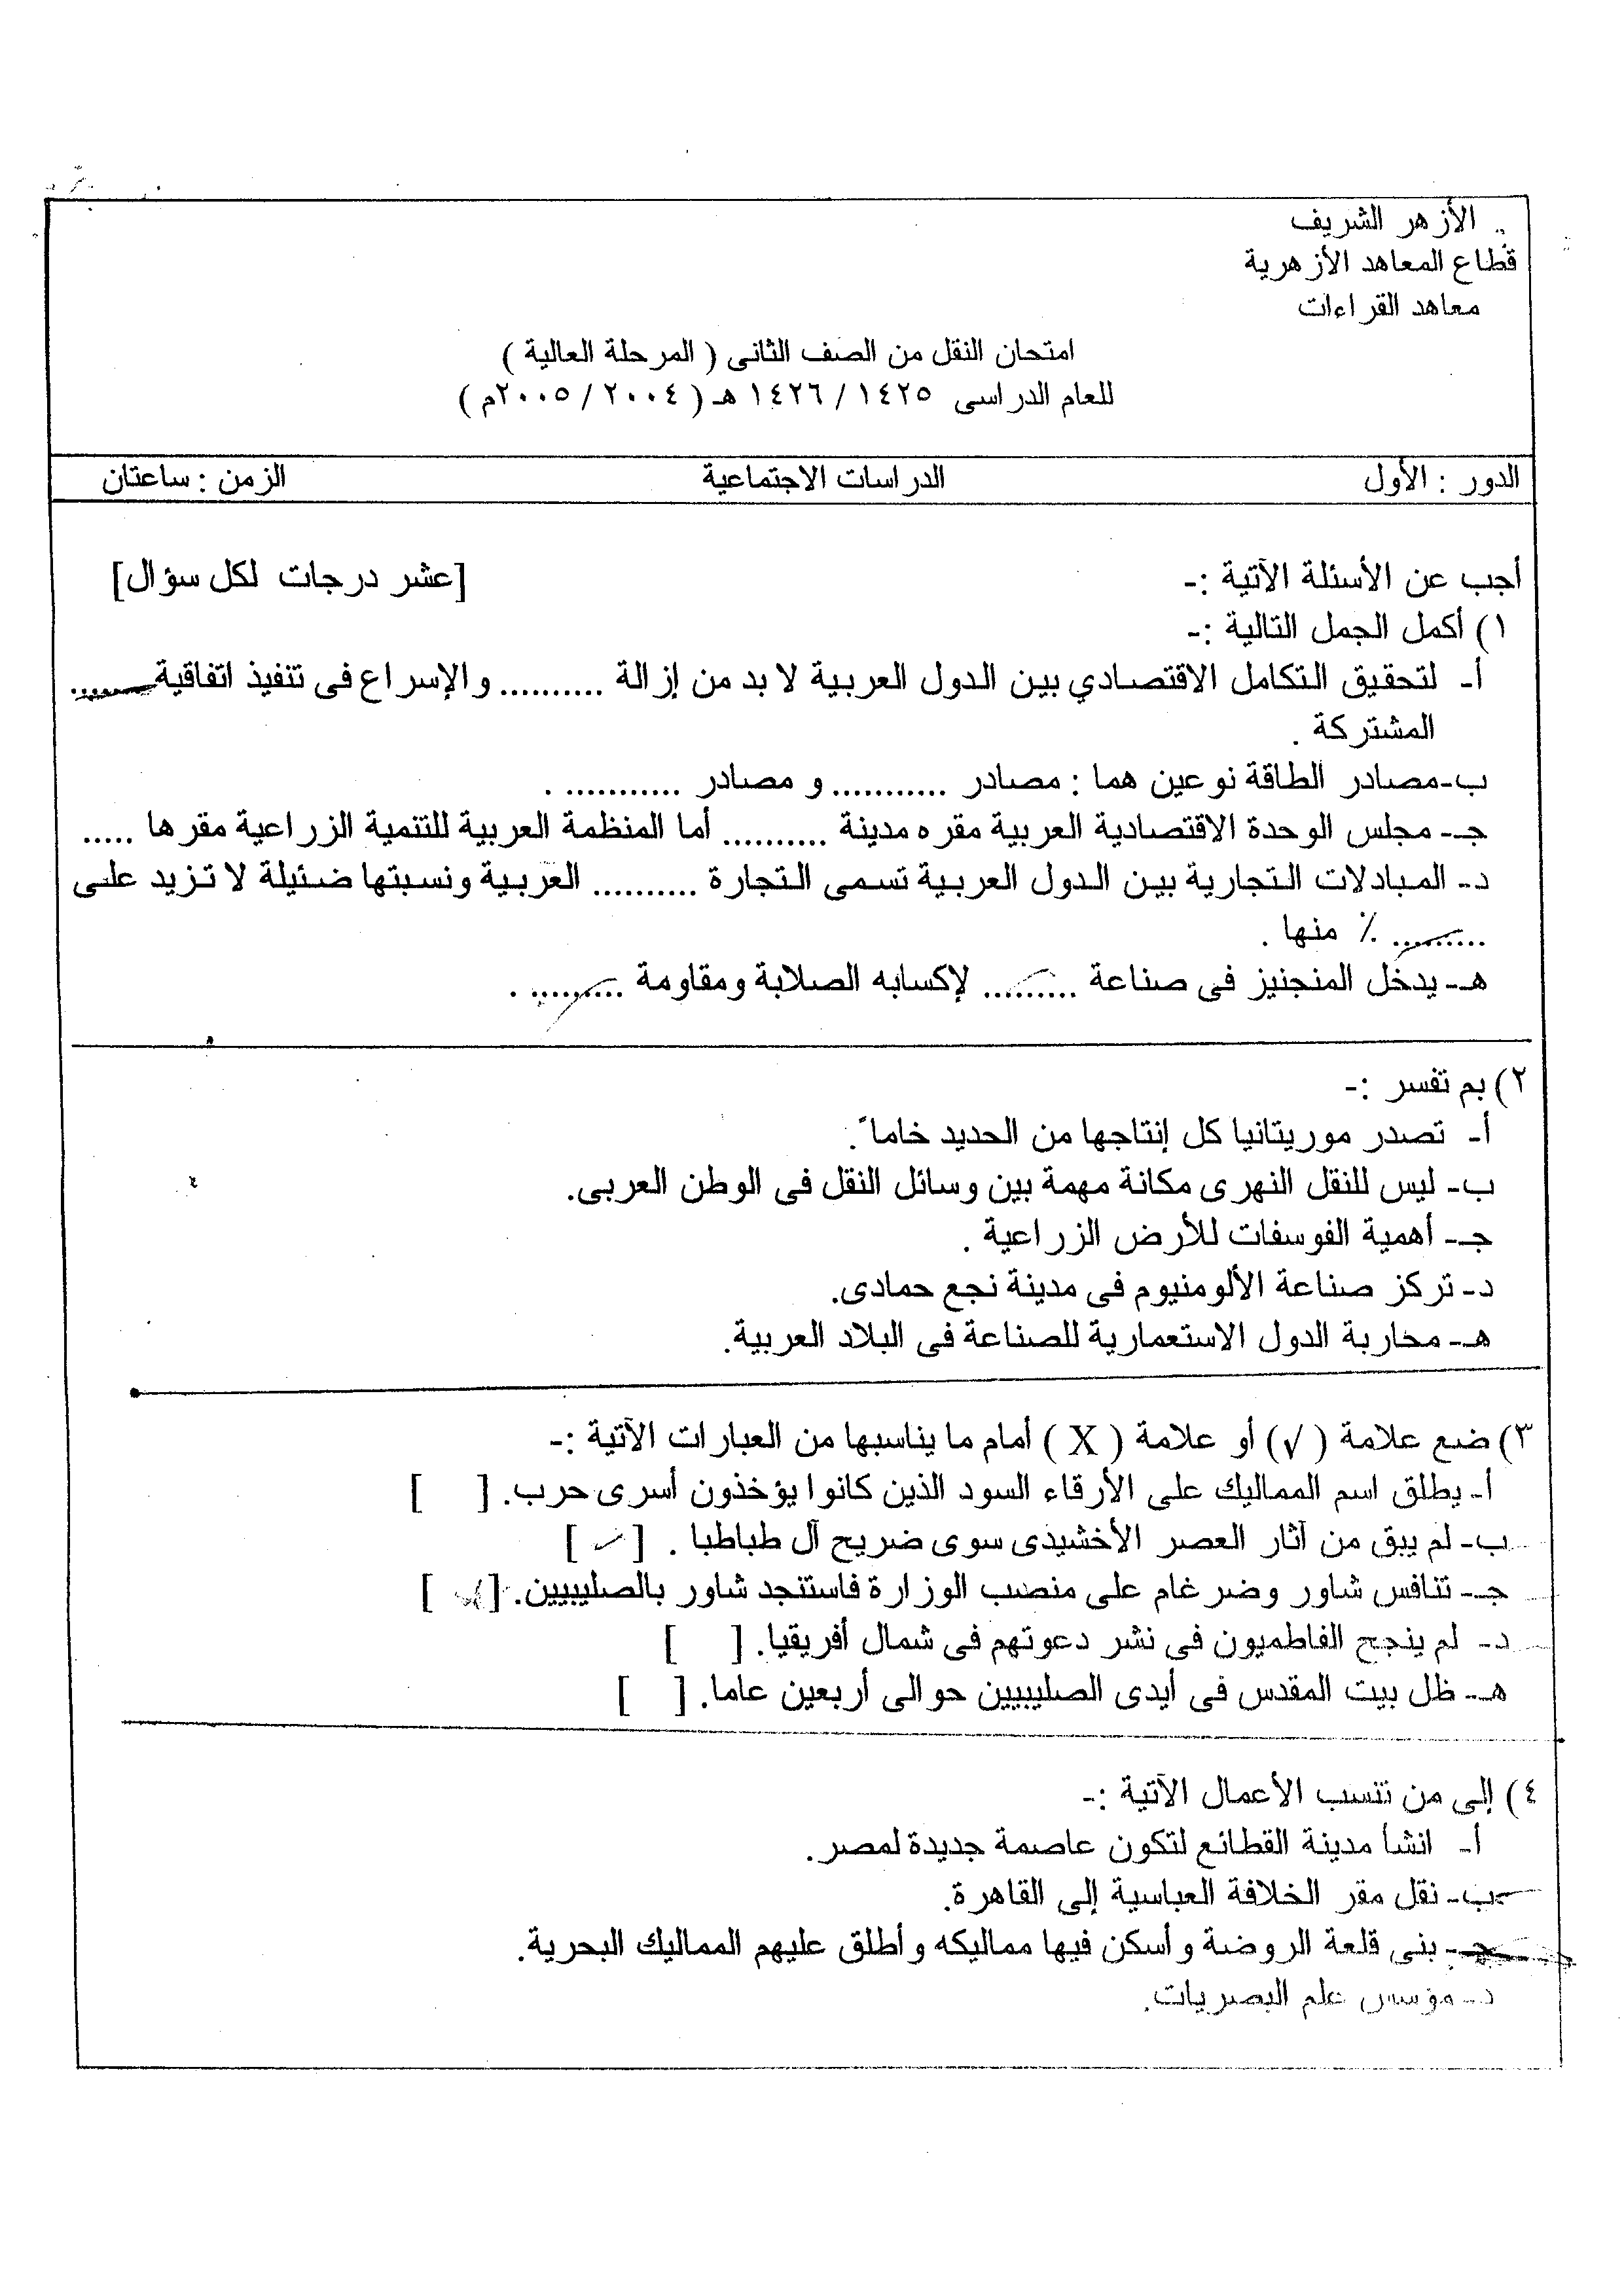 الأزهر الشريف
قطاع المعاهد الأزهرية
معاهد القراءات
امتحان النقل من الصف الثانى ( المرحلة العالية )
للعام الدراسى ١٤٢٥ / ١٤٢٦ هـ ( ٢٠٠٤ / ٢٠٠٥م )
الدور : الأول الدراسات الاجتماعية الزمن : ساعتان
أجب عن الأسئلة الآتية :- [عشر درجات لكل سؤال]
١) أكمل الجمل التالية :-
أ- لتحقيق التكامل الاقتصادي بين الدول العربية لا بد من إزالة .......... والإسراع فى تنفيذ اتفاقية..........
المشتركة .
ب-مصادر الطاقة نوعين هما : مصادر ........... و مصادر ........... .
جـ- مجلس الوحدة الاقتصادية العربية مقره مدينة .......... أما المنظمة العربية للتنمية الزراعية مقرها .....
د- المبادلات التجارية بين الدول العربية تسمى التجارة .......... العربية ونسبتها ضئيلة لا تزيد على
......... ٪ منها .
هـ- يدخل المنجنيز فى صناعة ......... لإكسابه الصلابة ومقاومة ......... .
٢) بم تفسر :-
أ- تصدر موريتانيا كل إنتاجها من الحديد خاماً.
ب- ليس للنقل النهرى مكانة مهمة بين وسائل النقل فى الوطن العربى.
جـ- أهمية الفوسفات للأرض الزراعية .
د- تركز صناعة الألومنيوم فى مدينة نجع حمادى.
هـ- محاربة الدول الاستعمارية للصناعة فى البلاد العربية.
٣) ضع علامة ( √ ) أو علامة ( X ) أمام ما يناسبها من العبارات الآتية :-
أ- يطلق اسم المماليك على الأرقاء السود الذين كانوا يؤخذون أسرى حرب. [ ]
ب- لم يبق من آثار العصر الأخشيدى سوى ضريح آل طباطبا . [ ✓ ]
جـ- تنافس شاور وضرغام على منصب الوزارة فاستنجد شاور بالصليبيين. [ ]
د- لم ينجح الفاطميون فى نشر دعوتهم فى شمال أفريقيا. [ ]
هـ- ظل بيت المقدس فى أيدى الصليبيين حوالى أربعين عاما. [ ]
٤) إلى من تنسب الأعمال الآتية :-
أ- انشأ مدينة القطائع لتكون عاصمة جديدة لمصر.
ب- نقل مقر الخلافة العباسية إلى القاهرة.
جـ- بنى قلعة الروضة وأسكن فيها مماليكه وأطلق عليهم المماليك البحرية.
د- مؤسس علم البصريات.